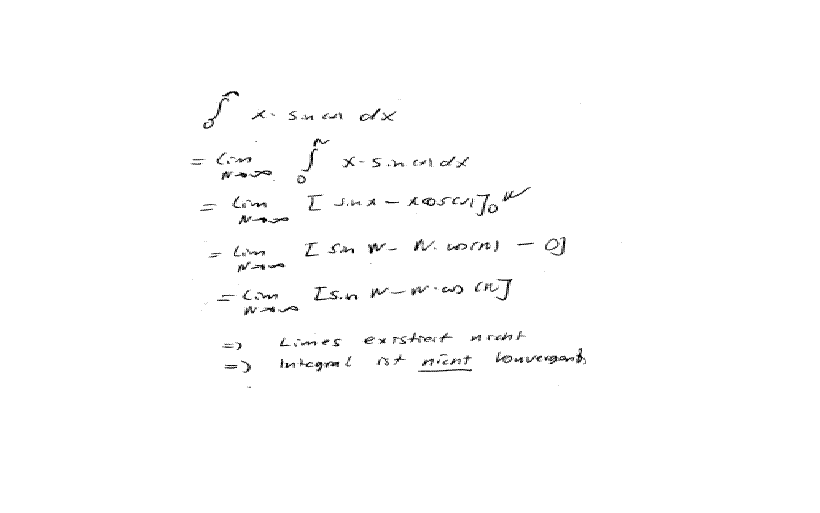 ∫₀^∞ x · sin(x) dx
= lim N→∞ ∫₀^N x · sin(x) dx
= lim N→∞ [sin x − x cos(x)]₀^N
= lim N→∞ [sin N − N · cos(N) − 0]
= lim N→∞ [sin N − N · cos(N)]
=> Limes existiert nicht
=> Integral ist nicht konvergent